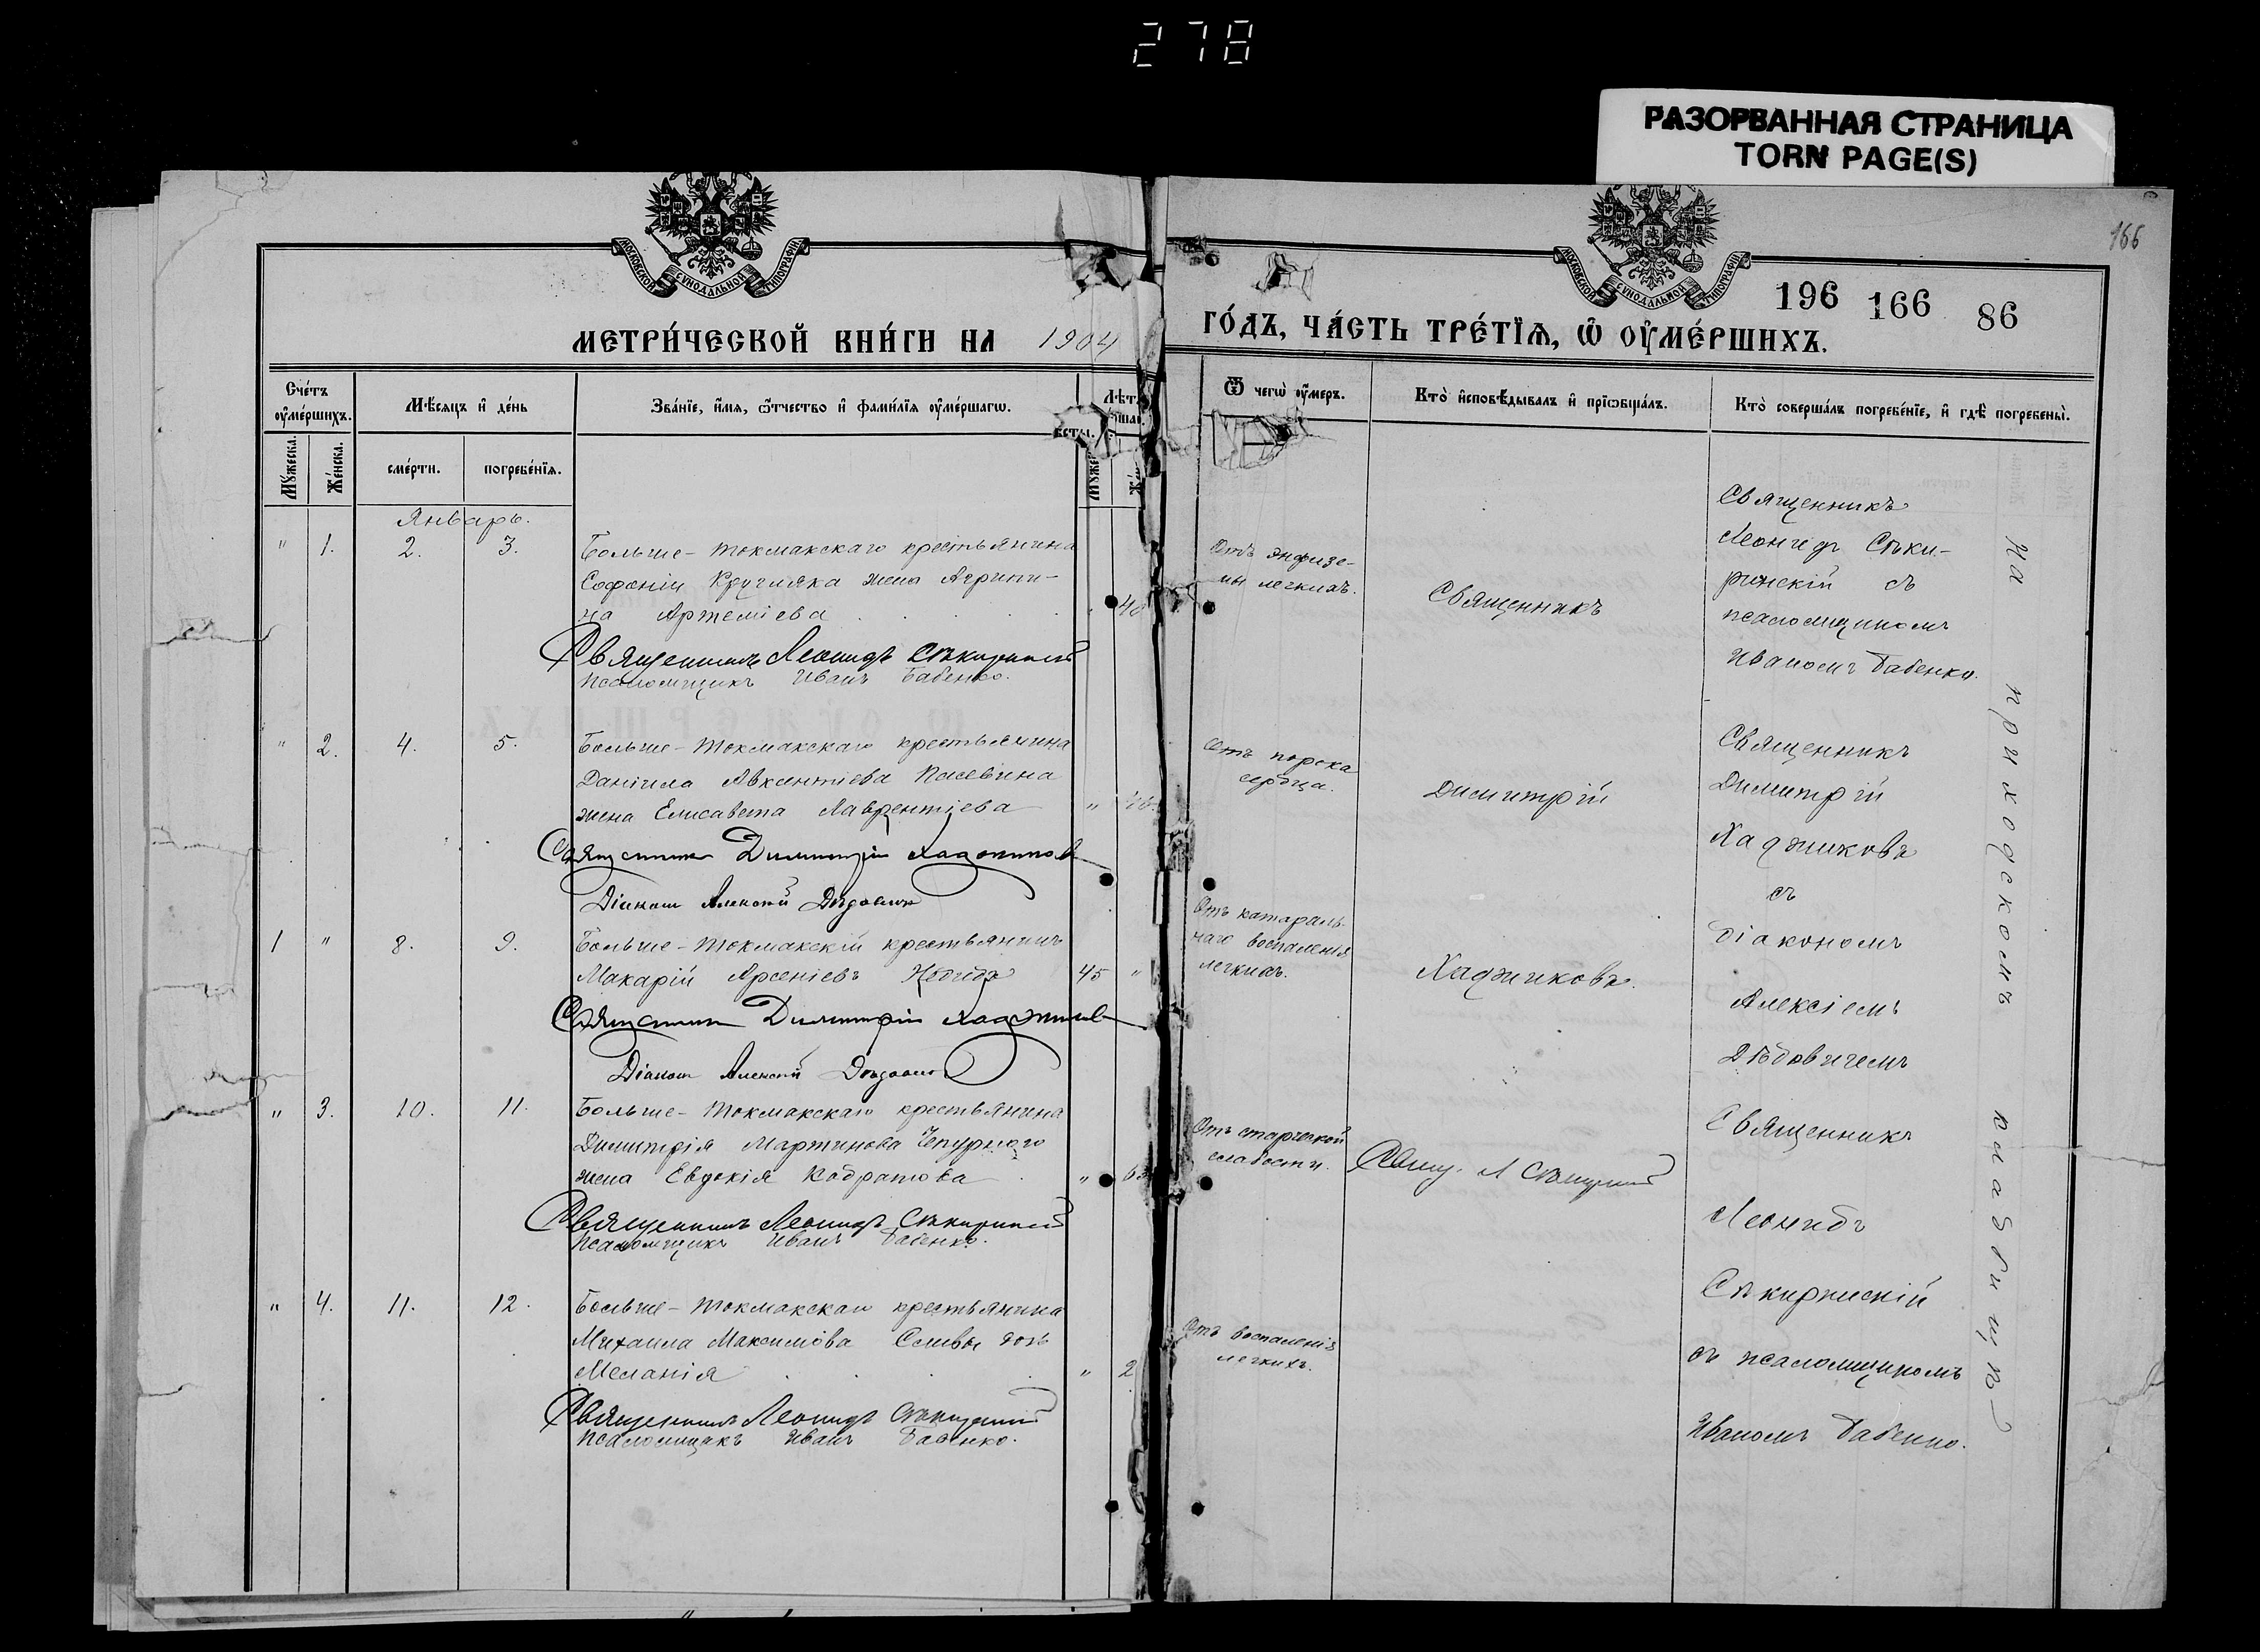 278
РАЗОРВАННАЯ СТРАНИЦА
TORN PAGE(S)
166
МОСКОВСКОЙ СѴНОДАЛЬНОЙ ТИПОГРАФІИ
МОСКОВСКОЙ СѴНОДАЛЬНОЙ ТИПОГРАФІИ
196 166 86
МЕТРИ́ЧЕСКОЙ КНИ́ГИ НА 1904
ГО́ДЪ, ЧА́СТЬ ТРЕ́ТЇѦ, Ѽ ОУ҆МЕ́РШИХЪ.
Сче́тъ оу҆ме́ршихъ.
Мѣ́сяцъ и҆ де́нь
Зва́нїе, и҆́мя, ѻ҆́тчество и҆ фами́лїя оу҆ме́ршагѡ.
Лѣт.
Ѿ чегѡ̀ оу҆́меръ.
Кто̀ и҆сповѣ́дывалъ и҆ прїѡбща́лъ.
Кто̀ соверша́лъ погребе́нїе, и҆ гдѣ̀ погребены̀.
Мꙋ́жеска.
Же́нска.
сме́рти.
погребе́нїя.
Январь.
" 1. 2. 3.
Больше-Токмакскаго крестьянина
Софонія Кругляка жена Агрипи-
на Артеміева
Священникъ Леонидъ Сѣкиринскій
Псаломщикъ Иванъ Бабенко.
Отъ эмфизе-
мы легкихъ.
Священникъ
Священникъ
Леонидъ Сѣки-
ринскій съ
псаломщикомъ
Иваномъ Бабенко.
" 2. 4. 5.
Больше-Токмакскаго крестьянина
Даніила Авксентіева
жена Елисавета Лаврентіева "
Священникъ Димитрій Хаджиновъ
Діаконъ Алексій Дѣдовичъ
Отъ порока
сердца.
Димитрій
Священникъ
Димитрій
Хаджиновъ
съ
1 " 8. 9.
Больше-Токмакскій крестьянинъ
Макарій Арсеніевъ 45 "
Священникъ Димитрій Хаджиновъ
Діаконъ Алексій Дѣдовичъ
Отъ катараль-
наго воспаленія
легкихъ.
Хаджиновъ.
діакономъ
Алексіемъ
Дѣдовичемъ
" 3. 10. 11.
Больше-Токмакскаго крестьянина
Димитрія Мартинова Чепурного
жена Евдокія Кодратова "
Священникъ Леонидъ Сѣкиринскій
Псаломщикъ Иванъ Бабенко.
Отъ старческой
слабости.
Свящ. Л Сѣкиринскій
Священникъ
Леонидъ
" 4. 11. 12.
Больше-Токмакскаго крестьянина
Михаила Максимова Сливы дочь
Меланія " 2
Священникъ Леонидъ Сѣкиринскій
Псаломщикъ Иванъ Бабенко.
Отъ воспаленія
легкихъ.
Сѣкиринскій
съ псаломщикомъ
Иваномъ Бабенко.
На приходскомъ кладбищѣ